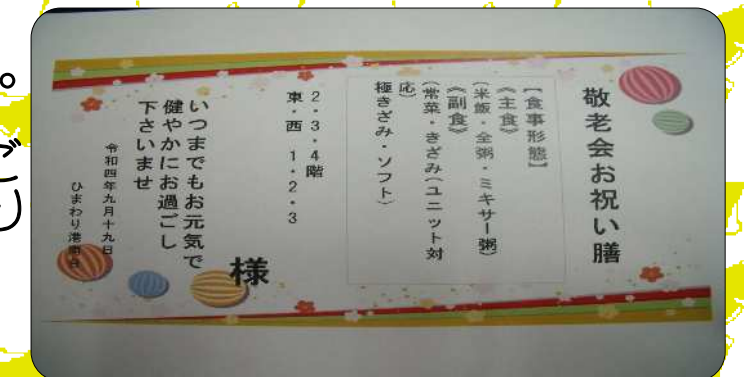 敬老会お祝い膳
【食事形態】
《主食》
（米飯・全粥・ミキサー粥）
《副食》
（常菜・きざみ（ユニット対
応）
極きざみ・ソフト）
2・3・4階
東・西　1・2・3
様
いつまでもお元気で
健やかにお過ごし
下さいませ
令和四年九月十九日
ひまわり港南台
。